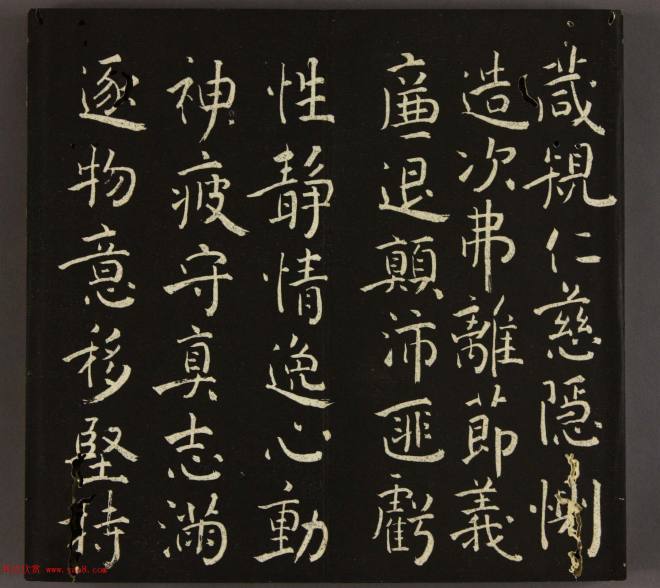 葴規仁慈隱惻
造次弗離節義
廉退顛沛匪虧
性靜情逸心動
神疲守真志滿
逐物意移堅持